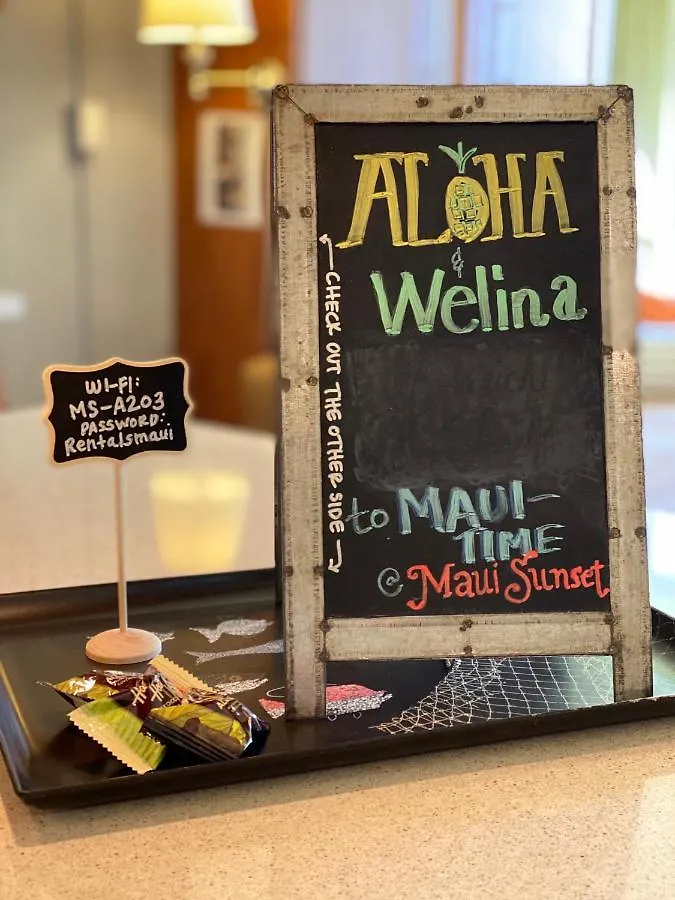 ALOHA
&
Welina
to MAUI-
TIME
@ Maui Sunset
←CHECK OUT THE OTHER SIDE→
WI-FI:
MS-A203
PASSWORD:
Rentalsmaui